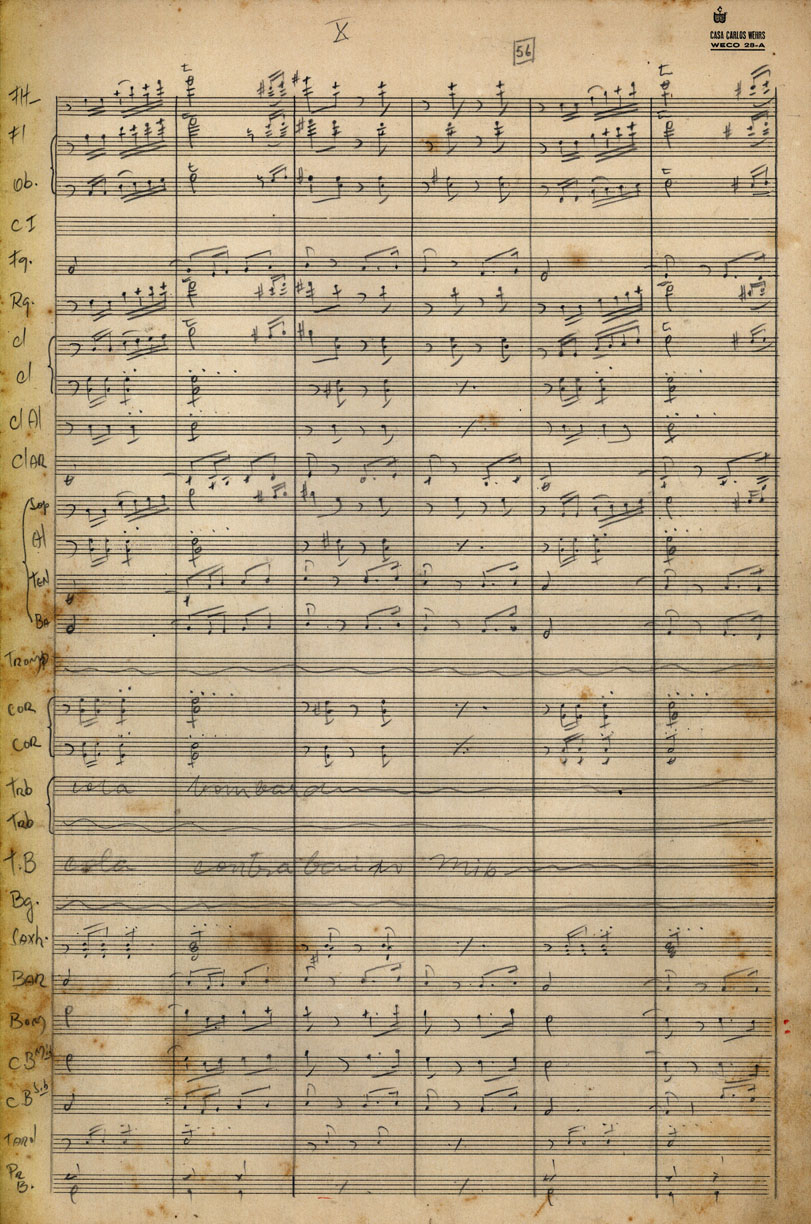 X
56
CASA CARLOS WEHRS
WECO 28-A
Fl
Ob.
C I
Fg.
Rq.
Cl
Cl
Cl Al
Cl AR
Sop
Al
TEN
BA
Tromp
COR
COR
Trb cola bombard
Trb
T.B cola contrabaixo Mib
Bg.
Saxh.
BAR
Bom
C B Mib
C B Sib
TAROL
B.